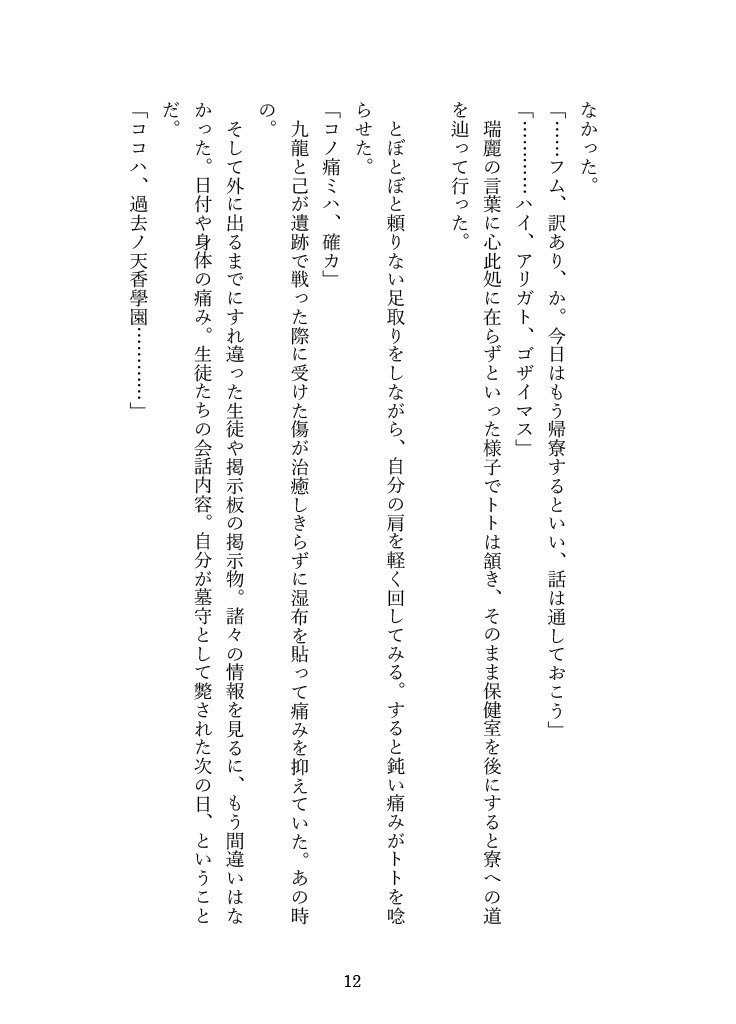 なかった。
「……フム、訳あり、か。今日はもう帰寮するといい、話は通しておこう」
「…………ハイ、アリガト、ゴザイマス」
　瑞麗の言葉に心此処に在らずといった様子でトトは頷き、そのまま保健室を後にすると寮への道
を辿って行った。
　とぼとぼと頼りない足取りをしながら、自分の肩を軽く回してみる。すると鈍い痛みがトトを唸
らせた。
「コノ痛ミハ、確カ」
　九龍と己が遺跡で戦った際に受けた傷が治癒しきらずに湿布を貼って痛みを抑えていた。あの時
の。
　そして外に出るまでにすれ違った生徒や掲示板の掲示物。諸々の情報を見るに、もう間違いはな
かった。日付や身体の痛み。生徒たちの会話内容。自分が墓守として斃された次の日、ということ
だ。
「ココハ、過去ノ天香學園…………」
12